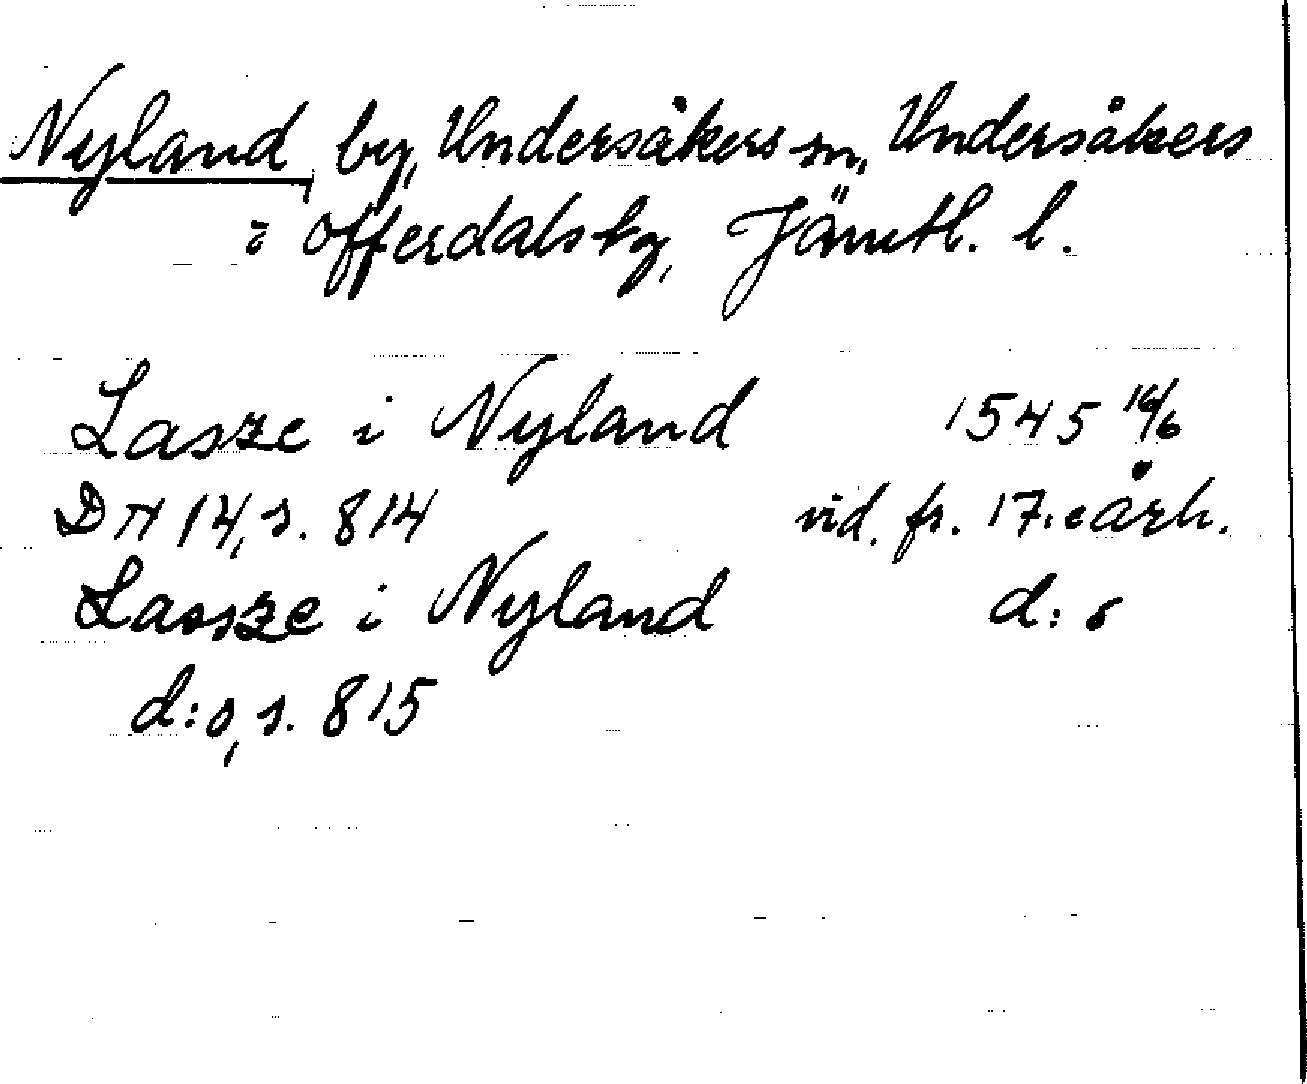 Nyland, by, Undersåkers sn, Undersåkers
o Offerdals tg, Jämtl. l.
Lasze i Nyland 1545 16/6
DN 14, s. 814 vid. fr. 17. e årh.
Lassze i Nyland d:o
d:o, s. 815